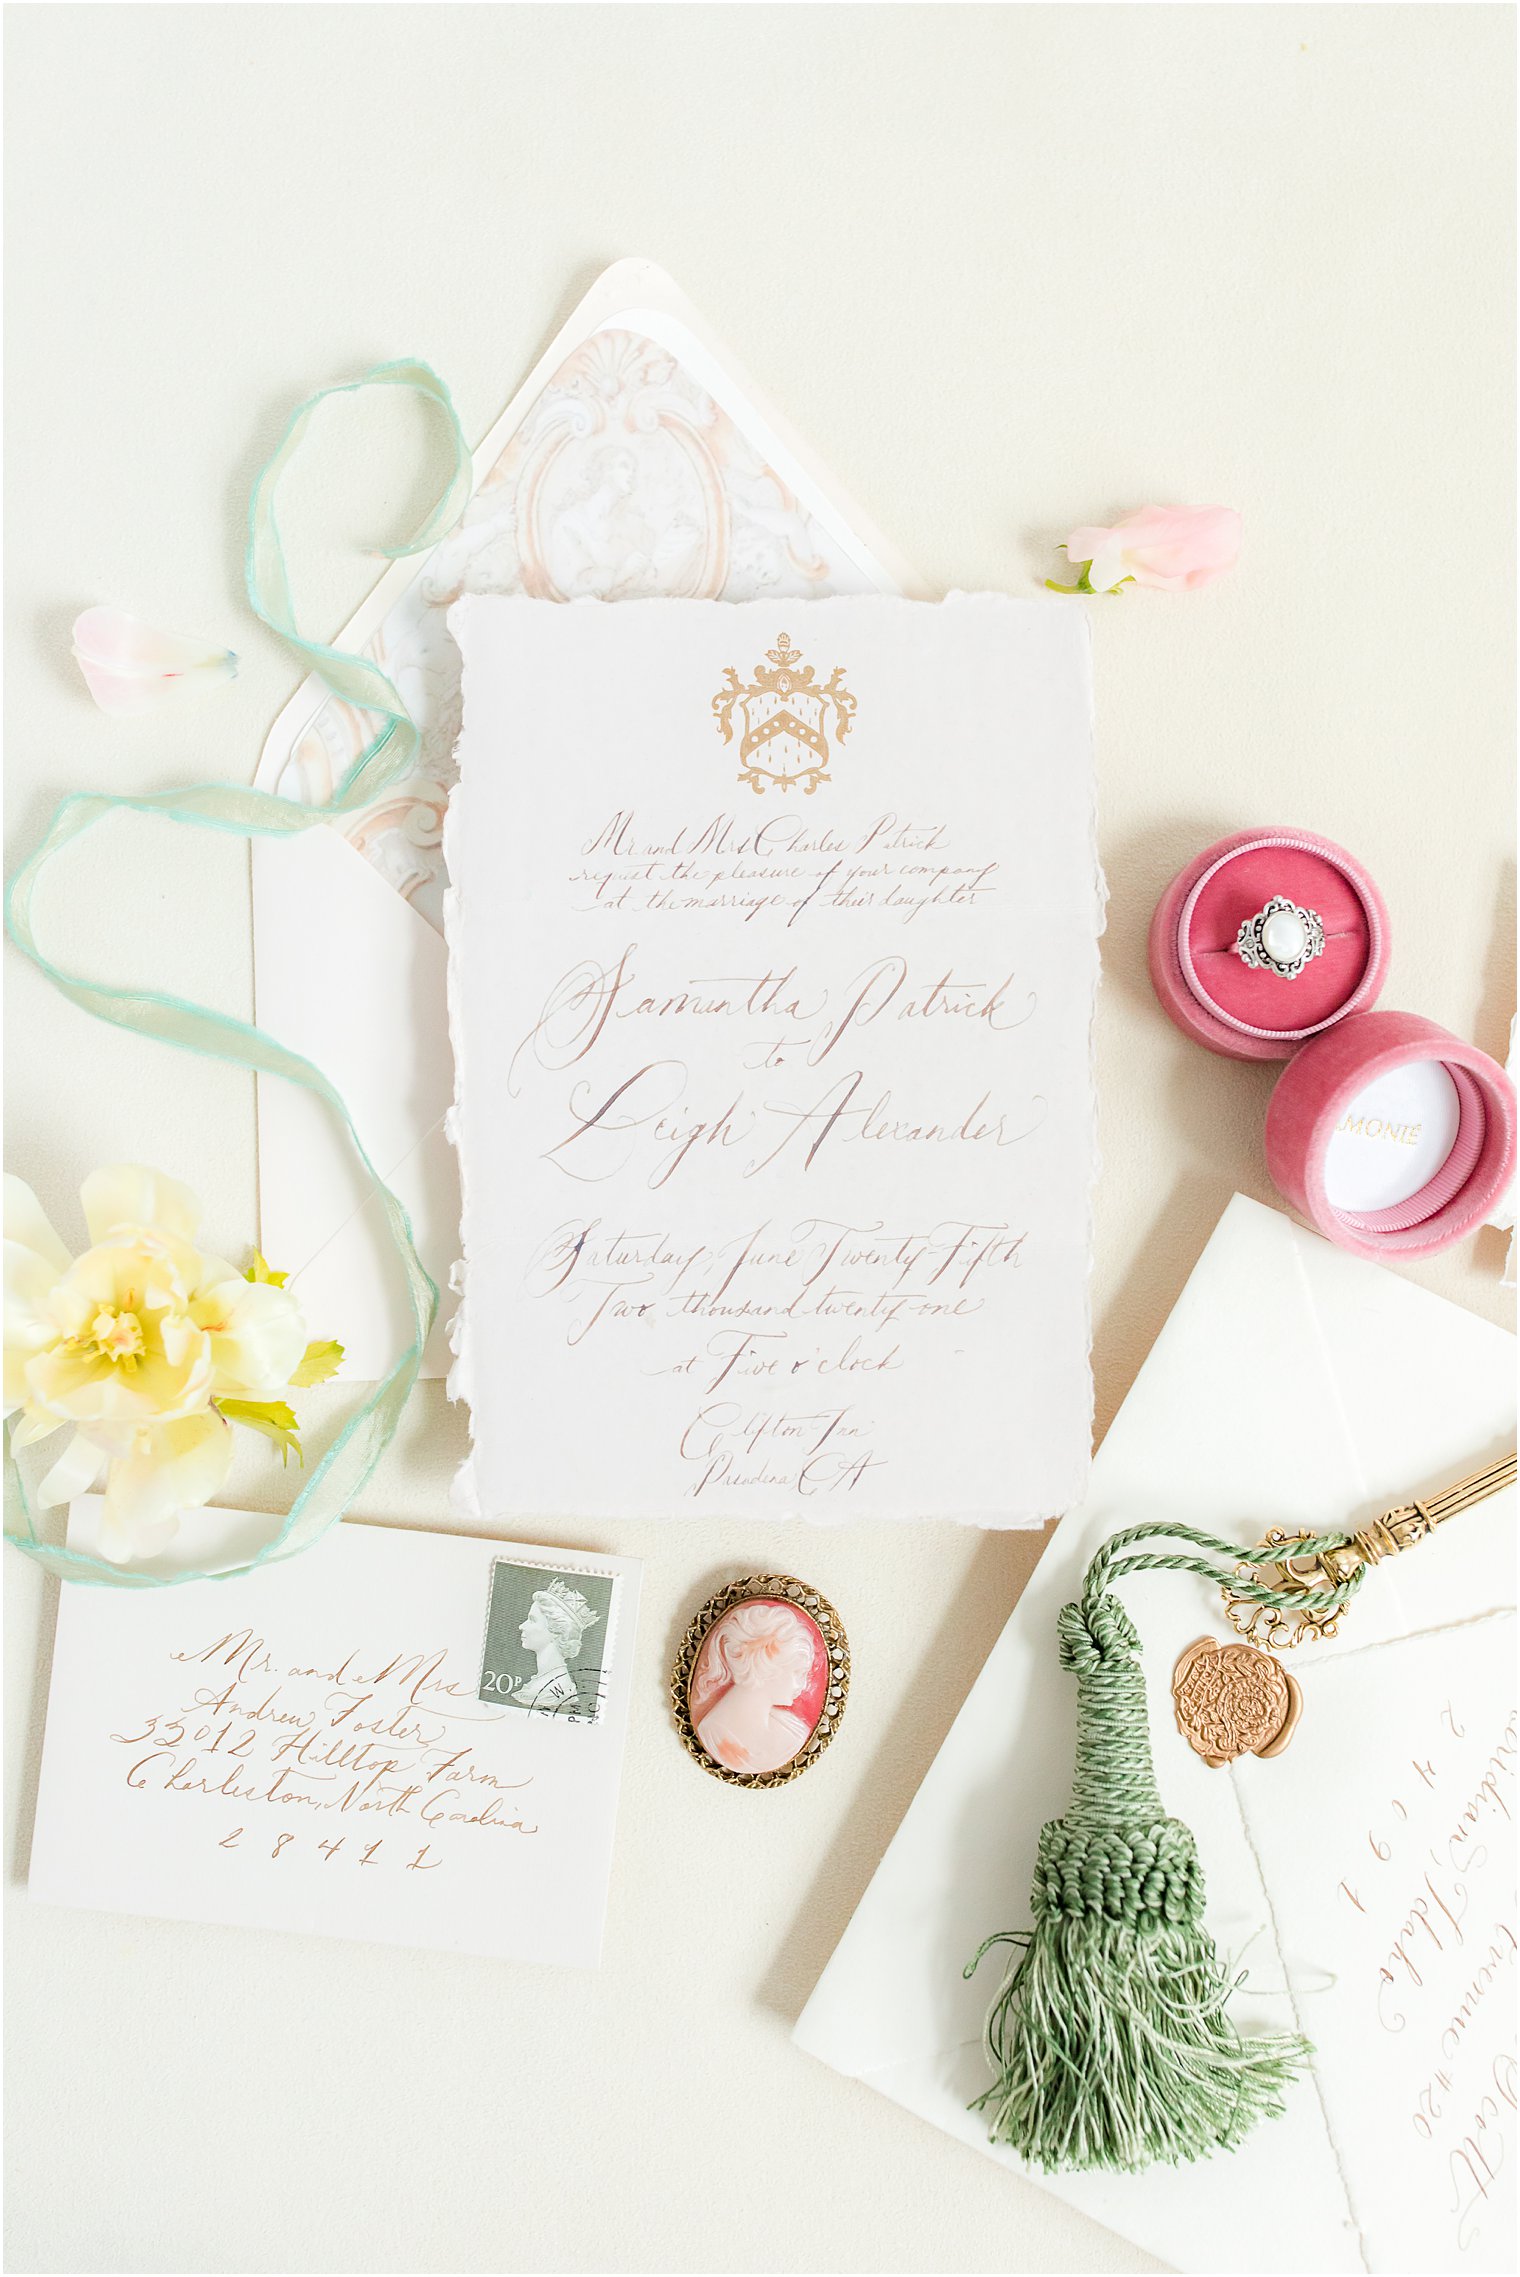 Mr. and Mrs Charles Patrick
request the pleasure of your company
at the marriage of their daughter
Samantha Patrick
to
Leigh Alexander
Saturday, June Twenty-Fifth
Two thousand twenty-one
at Five o'clock
Clifton Inn
Pasadena, CA
MONTÉ
20P
Mr. and Mrs
Andrew Foster
33012 Hilltop Farm
Charleston, North Carolina
28411
Scott
venue #20
eridian, Idaho
24091